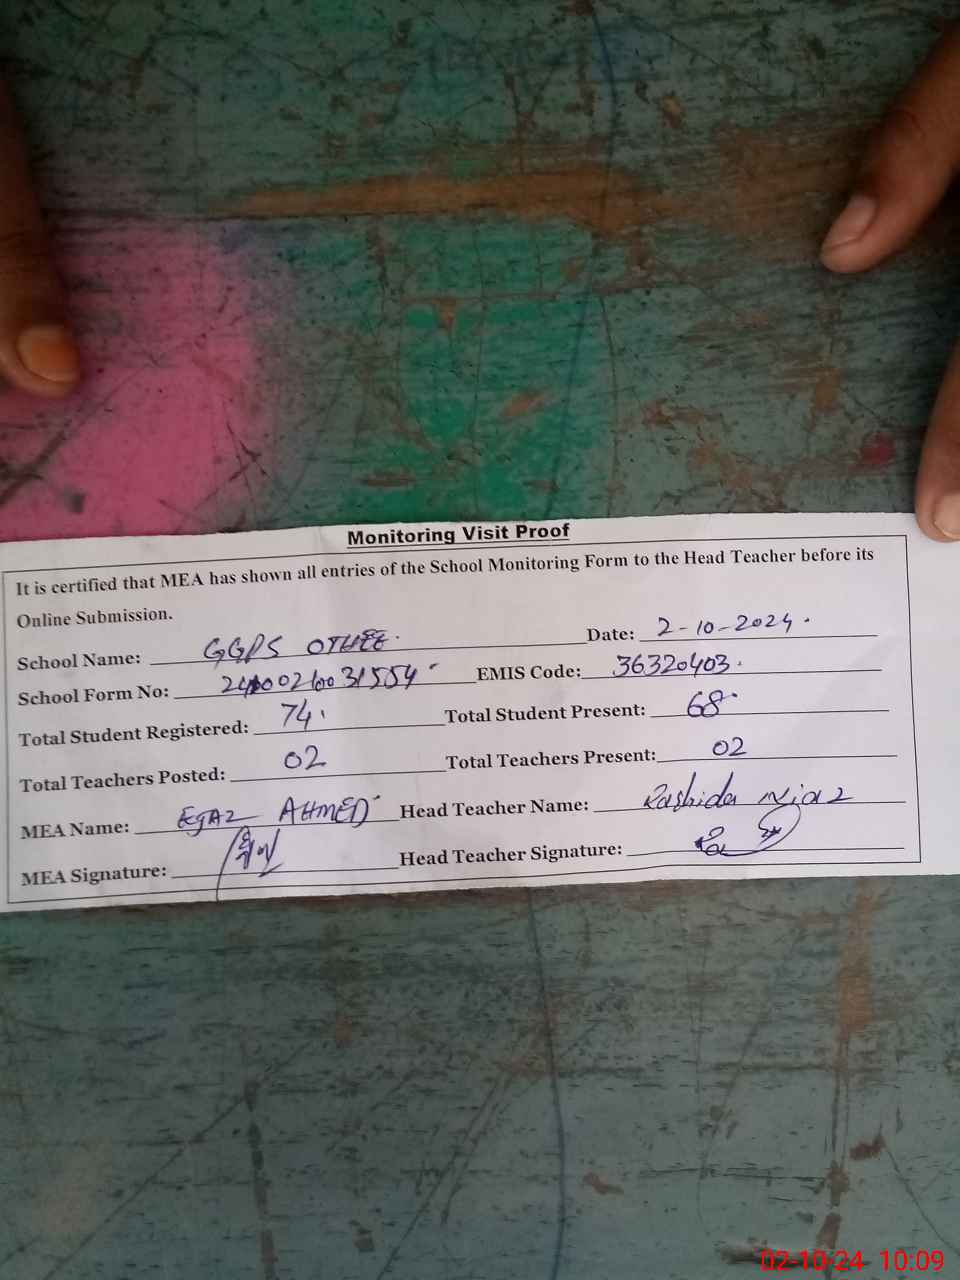 Monitoring Visit Proof
It is certified that MEA has shown all entries of the School Monitoring Form to the Head Teacher before its
Online Submission.
School Name: GGPS Date: 2-10-2024.
School Form No: EMIS Code: 36320403.
Total Student Registered: 74. Total Student Present: 68.
Total Teachers Posted: 02 Total Teachers Present: 02
MEA Name: EJAZ AHMED Head Teacher Name: Rashida Niaz
MEA Signature: Head Teacher Signature:
02-10-24 10:09